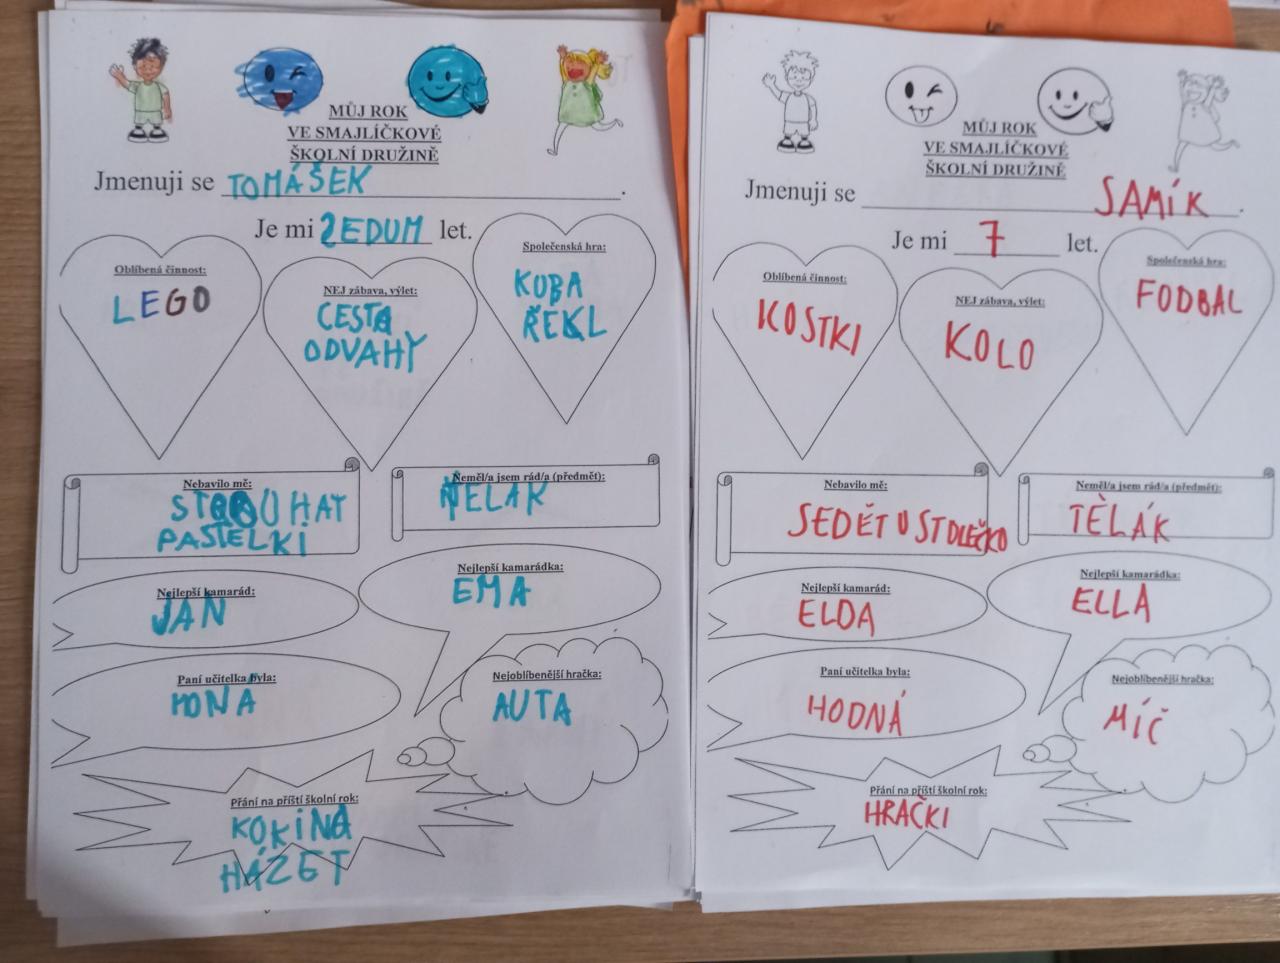 MŮJ ROK
VE SMAJLÍČKOVÉ
ŠKOLNÍ DRUŽINĚ
Jmenuji se TOMÁŠEK.
Je mi SEDUM let.
Oblíbená činnost:
LEGO
NEJ zábava, výlet:
CESTA
ODVAHY
Společenská hra:
KUBA
ŘEKL
Nebavilo mě:
STROUHAT
PASTELKI
Neměl/a jsem rád/a (předmět):
TĚLAK
Nejlepší kamarád:
JAN
Nejlepší kamarádka:
EMA
Paní učitelka byla:
HONÁ
Nejoblíbenější hračka:
AUTA
Přání na příští školní rok:
KOKINA
HÁZET
MŮJ ROK
VE SMAJLÍČKOVÉ
ŠKOLNÍ DRUŽINĚ
Jmenuji se SAMÍK.
Je mi 7 let.
Oblíbená činnost:
KOSTKI
NEJ zábava, výlet:
KOLO
Společenská hra:
FODBAL
Nebavilo mě:
SEDĚT U STOLEČKO
Neměl/a jsem rád/a (předmět):
TĚLÁK
Nejlepší kamarád:
ELDA
Nejlepší kamarádka:
ELLA
Paní učitelka byla:
HODNÁ
Nejoblíbenější hračka:
MÍČ
Přání na příští školní rok:
HRAČKI